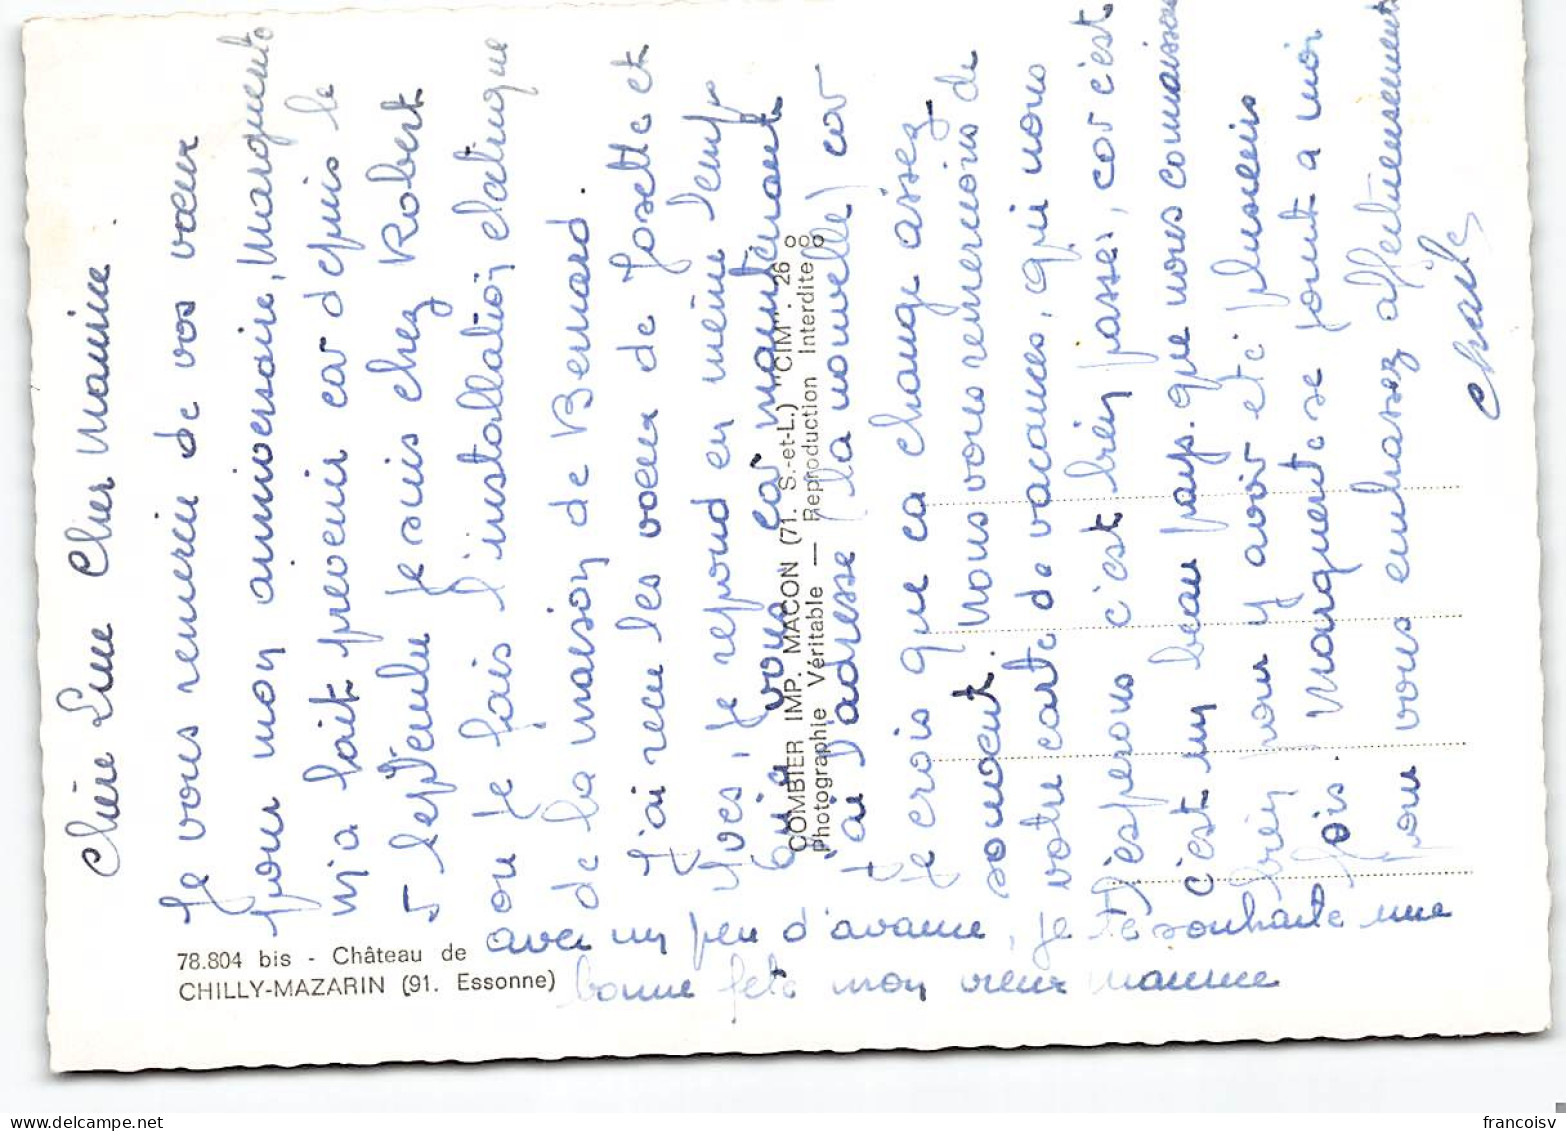 Chère Line Cher Maurice.
Je vous remercie de vos vœux
pour mon anniversaire, Marguerite
m'a fait prevenir car depuis le
5 Septembre je suis chez Robert
ou je fais l'installation électrique
de la maison de Bernard.
J'ai recu les voeux de Josette et
Yves, je repond en même temps
vous car maintenant
j'ai l'adresse (la nouvelle) car
je crois que ca change assez
souvent. Nous vous remercions de
votre carte de vacances, qui nous
J'espérons c'est bien passer, car c'est
c'est un beau pays. que nous connaissons
bien pour y avoir eté plusieurs
fois. Marguerite se joint a moi
pour vous embrassez affectueusement
Charles
avec un peu d'avance, je te souhaite une
bonne fete mon vieux Maurice
78.804 bis - Château de
CHILLY-MAZARIN (91. Essonne)
COMBIER IMP. MACON (71. S.-et-L.) "CIM". 26
Photographie Véritable — Reproduction Interdite
francoisv